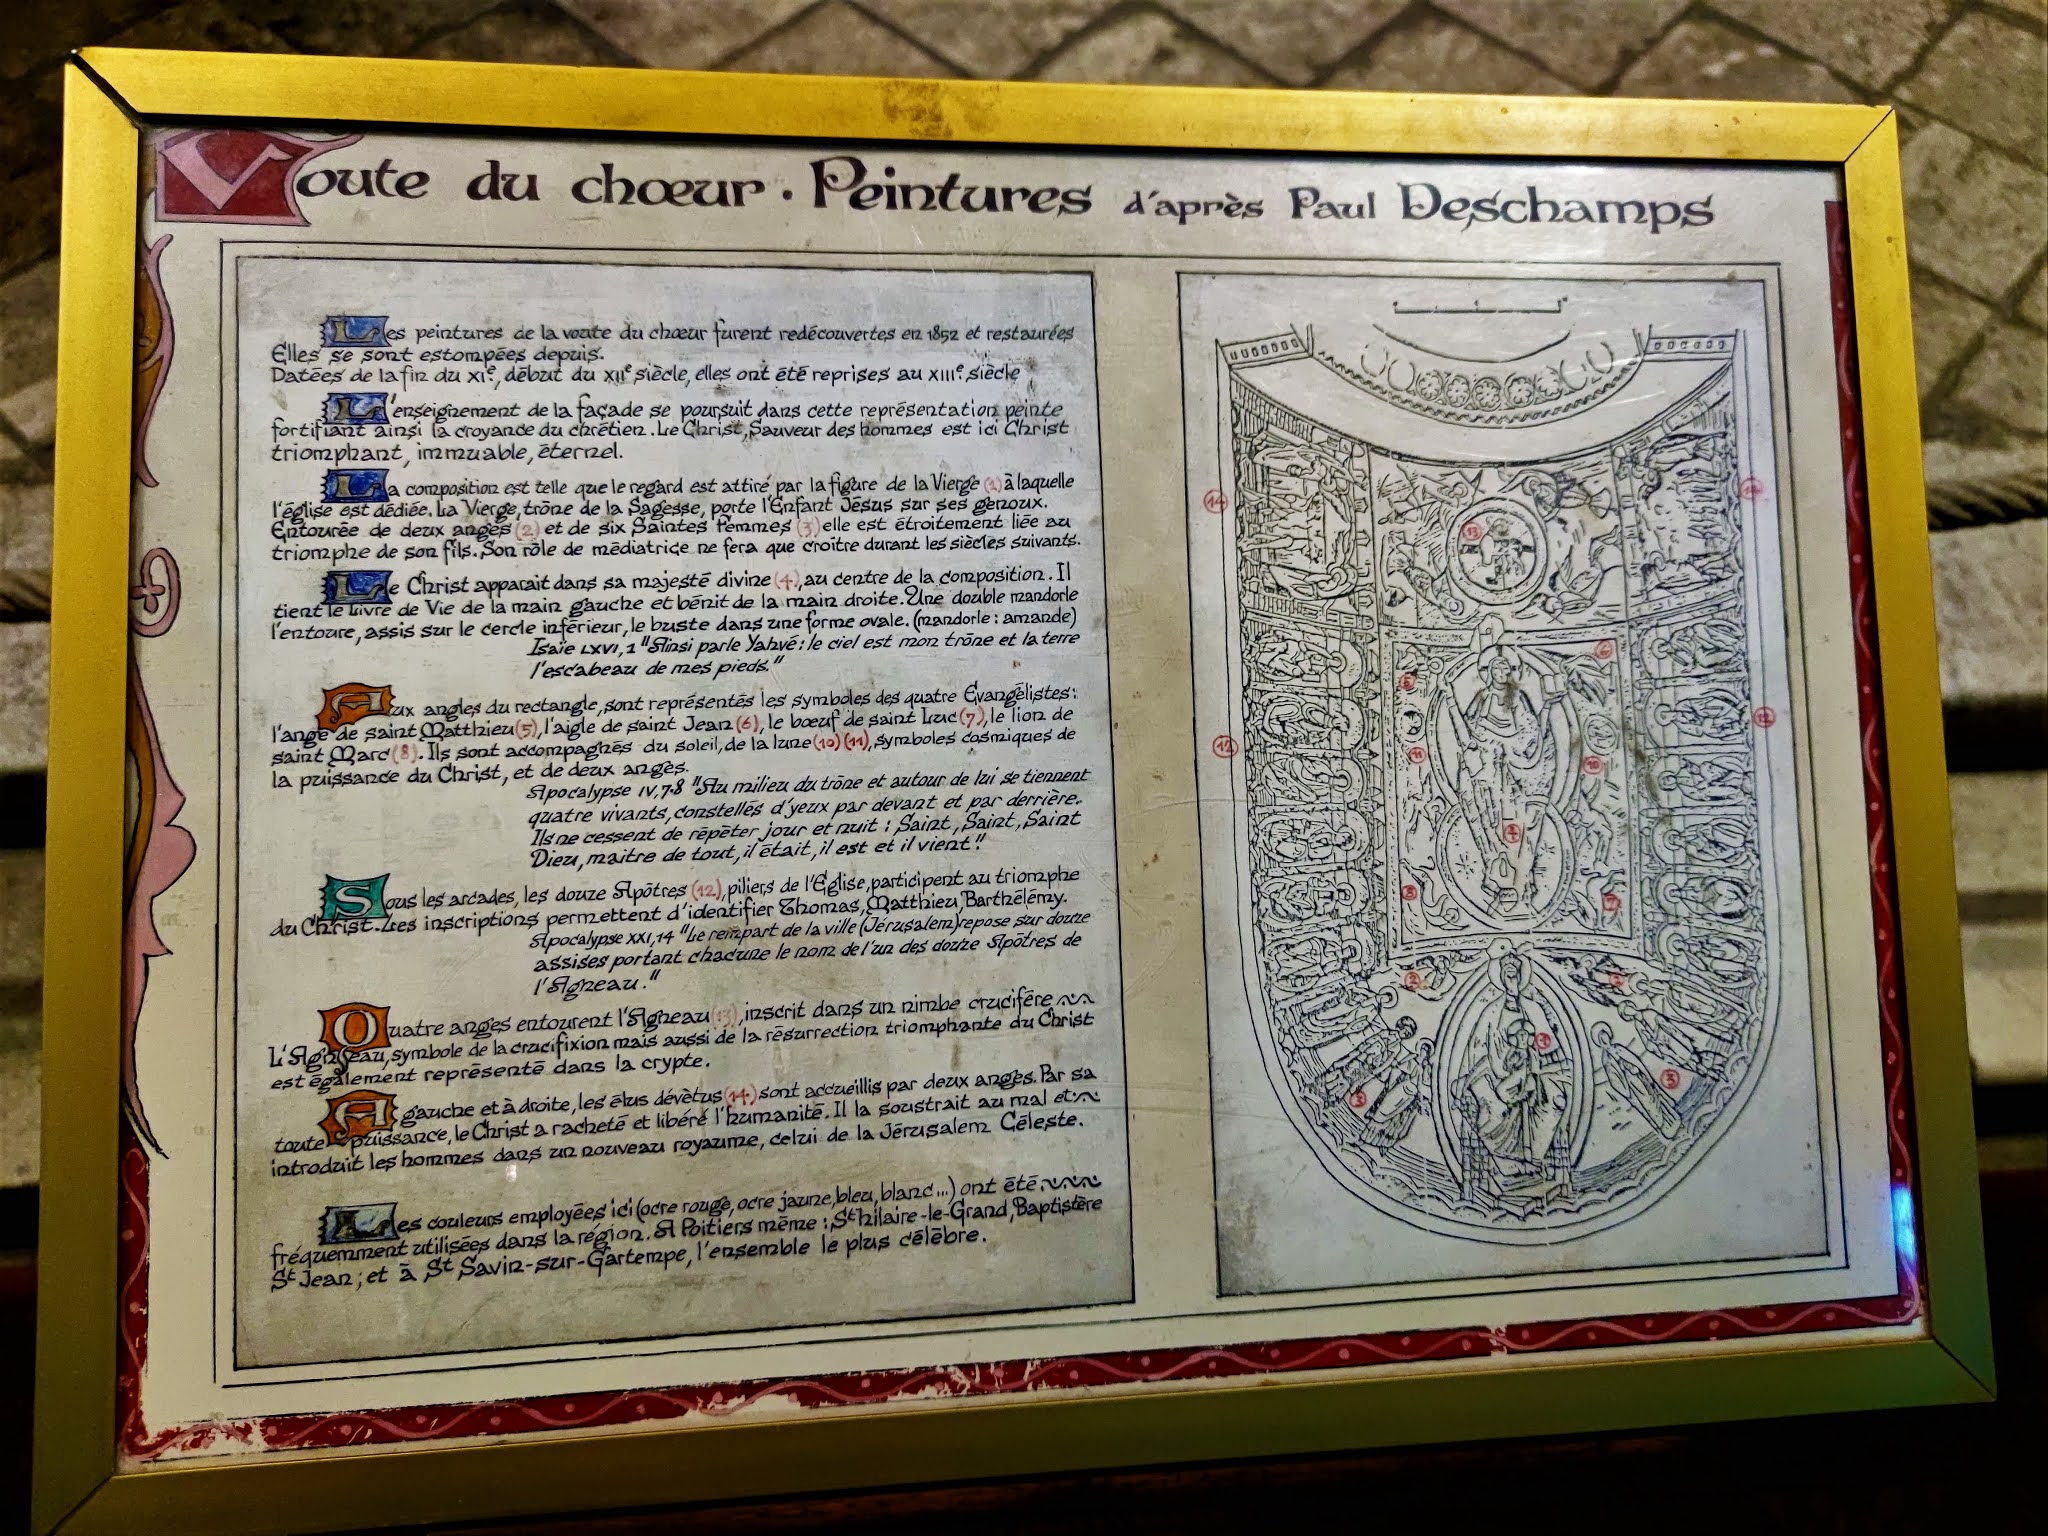 Voute du chœur . Peintures d'après Paul Deschamps
Les peintures de la voute du chœur furent redécouvertes en 1852 et restaurées
Elles se sont estompées depuis.
Datées de la fin du XIe, début du XIIe siècle, elles ont été reprises au XIIIe siècle
L'enseignement de la façade se poursuit dans cette représentation peinte
fortifiant ainsi la croyance du chrétien. Le Christ, Sauveur des hommes est ici Christ
triomphant, immuable, éternel.
La composition est telle que le regard est attiré par la figure de la Vierge (1) à laquelle
l'église est dédiée. La Vierge, trône de la Sagesse, porte l'Enfant Jésus sur ses genoux.
Entourée de deux anges (2) et de six Saintes Femmes (3) elle est étroitement liée au
triomphe de son fils. Son rôle de médiatrice ne fera que croître durant les siècles suivants.
Le Christ apparait dans sa majesté divine (4), au centre de la composition. Il
tient le Livre de Vie de la main gauche et bénit de la main droite. Une double mandorle
l'entoure, assis sur le cercle inférieur, le buste dans une forme ovale. (mandorle : amande)
Isaïe LXVI, 1 "Ainsi parle Yahvé : le ciel est mon trône et la terre
l'escabeau de mes pieds."
Aux angles du rectangle, sont représentés les symboles des quatre Evangélistes :
l'ange de saint Matthieu (5), l'aigle de saint Jean (6), le bœuf de saint Luc (7), le lion de
saint Marc (8). Ils sont accompagnés du soleil, de la lune (10) (11), symboles cosmiques de
la puissance du Christ, et de deux anges.
Apocalypse IV, 7-8 "Au milieu du trône et autour de lui se tiennent
quatre vivants, constellés d'yeux par devant et par derrière.
Ils ne cessent de répéter jour et nuit : Saint, Saint, Saint
Dieu, maitre de tout, il était, il est et il vient"
Sous les arcades, les douze Apôtres (12), piliers de l'Eglise, participent au triomphe
du Christ. Les inscriptions permettent d'identifier Thomas, Matthieu, Barthélémy.
Apocalypse XXI, 14 "Le rempart de la ville (Jérusalem) repose sur douze
assises portant chacune le nom de l'un des douze Apôtres de
l'Agneau."
Quatre anges entourent l'Agneau (13), inscrit dans un nimbe crucifére
L'Agneau, symbole de la crucifixion mais aussi de la résurrection triomphante du Christ
est également représenté dans la crypte.
A gauche et à droite, les élus dévêtus (14) sont accueillis par deux anges. Par sa
toute puissance, le Christ a racheté et libéré l'humanité. Il la soustrait au mal et
introduit les hommes dans un nouveau royaume, celui de la Jérusalem Céleste.
Les couleurs employées ici (ocre rouge, ocre jaune, bleu, blanc...) ont été
fréquemment utilisées dans la région. A Poitiers même : St hilaire-le-Grand, Baptistère
St Jean ; et à St Savin-sur-Gartempe, l'ensemble le plus célèbre.
14
13
14
6
5
12
12
11
10
4
8
7
2
2
1
3
3